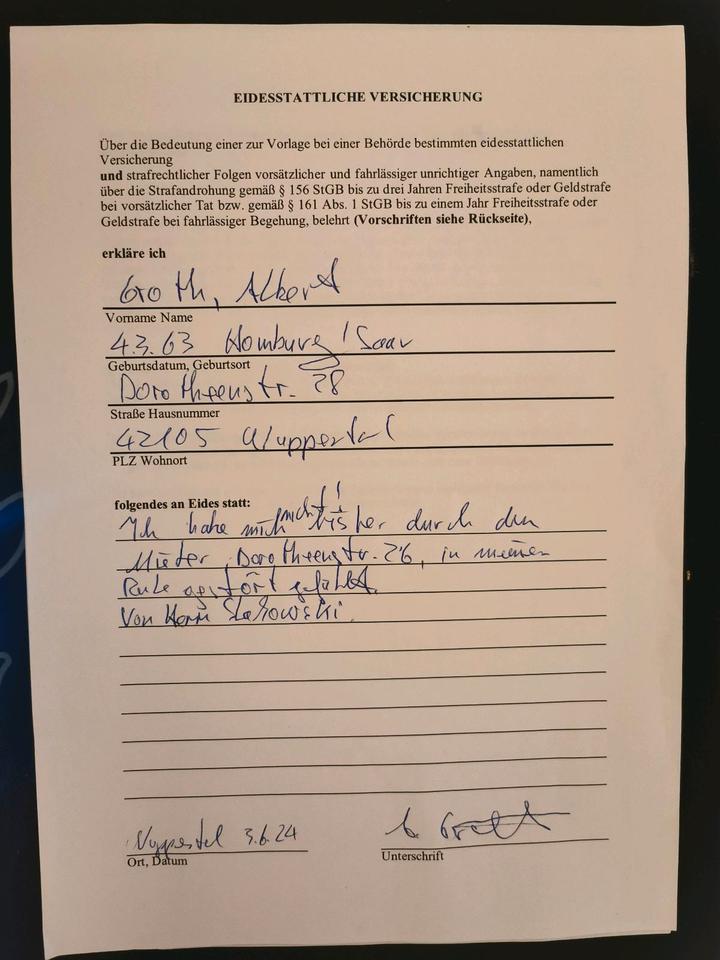 EIDESSTATTLICHE VERSICHERUNG
Über die Bedeutung einer zur Vorlage bei einer Behörde bestimmten eidesstattlichen
Versicherung
und strafrechtlicher Folgen vorsätzlicher und fahrlässiger unrichtiger Angaben, namentlich
über die Strafandrohung gemäß § 156 StGB bis zu drei Jahren Freiheitsstrafe oder Geldstrafe
bei vorsätzlicher Tat bzw. gemäß § 161 Abs. 1 StGB bis zu einem Jahr Freiheitsstrafe oder
Geldstrafe bei fahrlässiger Begehung, belehrt (Vorschriften siehe Rückseite),
erkläre ich
Groth, Albert
Vorname Name
4.3.63 Homburg / Saar
Geburtsdatum, Geburtsort
Dorotheenstr. 28
Straße Hausnummer
42105 Wuppertal
PLZ Wohnort
folgendes an Eides statt:
Ich habe mich nicht! bisher durch den
Mieter, Dorotheenstr. 26, in meiner
Ruhe gestört gefühlt.
Von Herrn
Wuppertal 3.6.24
Ort, Datum
Unterschrift